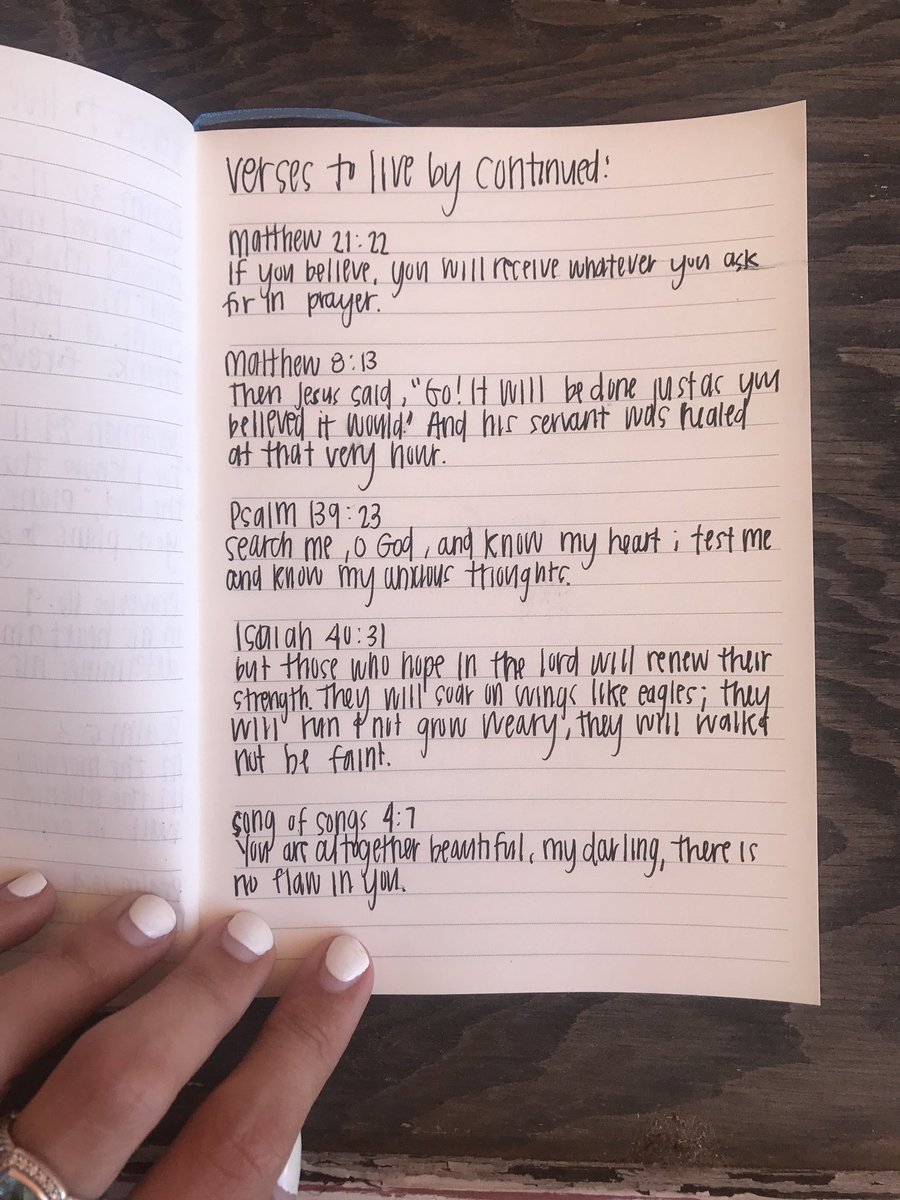 verses to live by continued:
Matthew 21:22
If you believe, you will receive whatever you ask
for in prayer.
Matthew 8:13
Then Jesus said, "Go! It will be done just as you
believed it would." And his servant was healed
at that very hour.
Psalm 139:23
search me, O God, and know my heart; test me
and know my anxious thoughts.
Isaiah 40:31
but those who hope in the lord will renew their
strength. They will soar on wings like eagles; they
will run & not grow weary, they will walk &
not be faint.
song of songs 4:7
You are altogether beautiful, my darling, there is
no flaw in you.